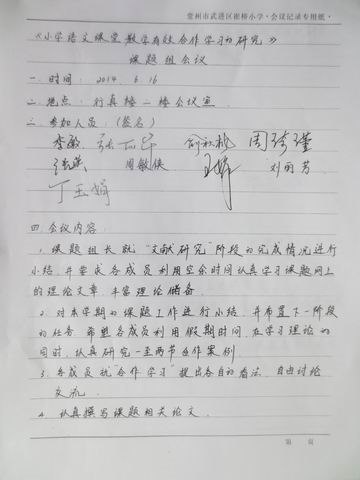 常州市武进区崔桥小学·会议记录专用纸
《小学语文课堂教学有效合作学习的研究》
课题组会议
一.时间: 2014 . 6 . 16
二.地点:行真楼二楼会议室
三.参加人员:(签名)
李敏
周敏侠 刘丽芳
丁玉娟
四.会议内容:
1.课题组长就"文献研究"阶段的完成情况进行
小结.并要求各成员利用空余时间认真学习课题网上
的理论文章.丰富理论储备.
2.对本学期的课题工作进行小结.并布置下一阶段
的任务.希望各成员利用假期时间.在学习理论的
同时.认真研究一至两节合作案例.
3.各成员就"合作学习"提出各自的看法.自由讨论
交流.
4.认真撰写课题相关论文.
第 页